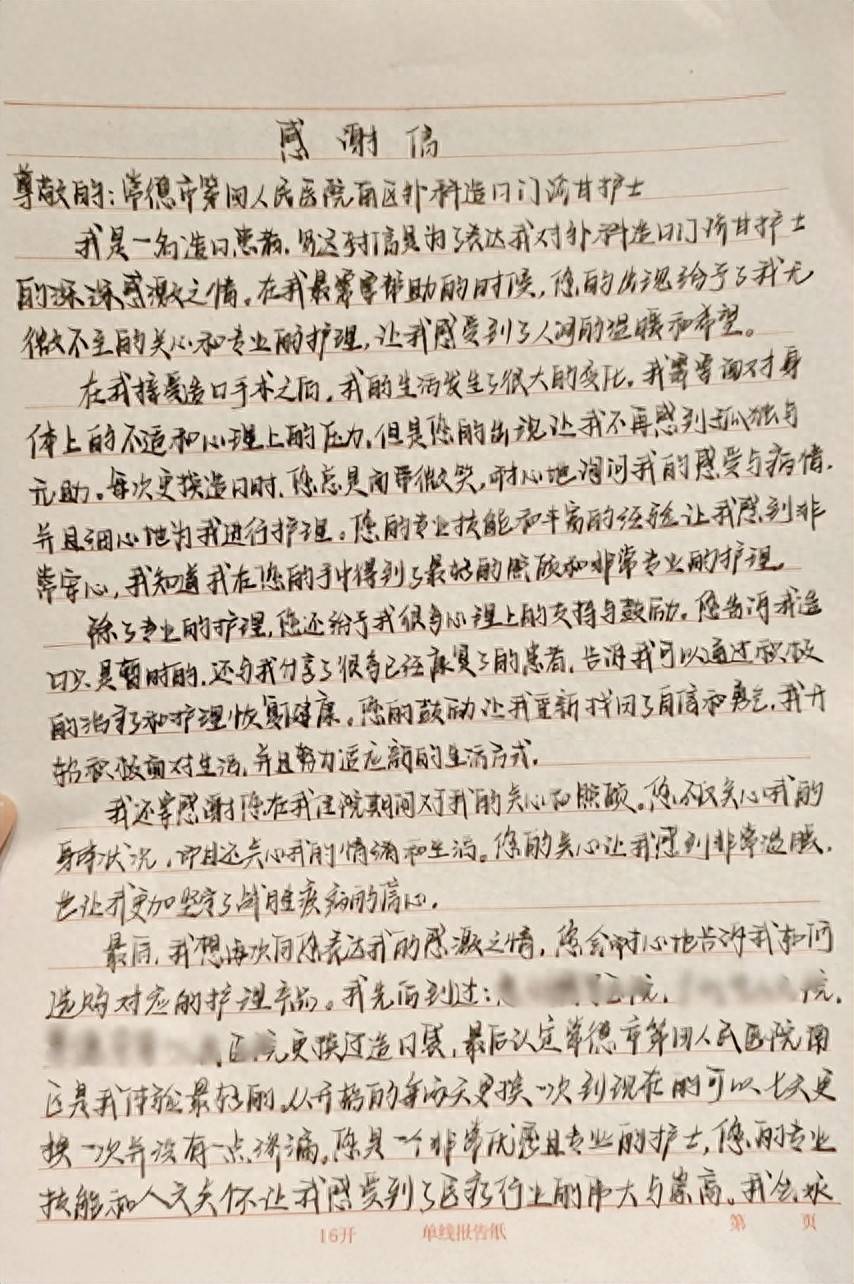 感谢信
尊敬的：常德市第四人民医院南区外科造口门诊甘护士
我是一名造口患者，写这封信是为了表达我对外科造口门诊甘护士
的深深感激之情。在我最需要帮助的时候，您的出现给予了我无
微不至的关心和专业的护理，让我感受到了人间的温暖和希望。
在我接受造口手术之后，我的生活发生了很大的变化。我需要面对身
体上的不适和心理上的压力，但是您的出现让我不再感到孤独与
无助。每次更换造口时，您总是面带微笑，耐心地询问我的感受与病情，
并且细心地为我进行护理。您的专业技能和丰富的经验让我感到非
常安心，我知道我在您的手中得到了最好的照顾和非常专业的护理。
除了专业的护理，您还给予我很多心理上的支持与鼓励。您告诉我造
口只是暂时的，还与我分享了很多已经康复了的患者，告诉我可以通过积极
的治疗和护理恢复健康。您的鼓励让我重新找回了自信和勇气，我开
始积极面对生活，并且努力适应新的生活方式。
我还要感谢您在我住院期间对我的关心和照顾。您不仅关心我的
身体状况，而且还关心我的情绪和生活。您的关心让我感到非常温暖，
也让我更加坚定了战胜疾病的信心。
最后，我想再次向您表达我的感激之情，您会耐心地告诉我如何
选购对应的护理产品。我先后到过：院，院，
医院更换过造口袋，最后认定常德市第四人民医院南
区是我体验最好的。从开始的每两天更换一次到现在的可以七天更
换一次并没有一点渗漏。您是一个非常优秀且专业的护士，您的专业
技能和人文关怀让我感受到了医疗行业的伟大与崇高。我会永
16开 单线报告纸 第 页